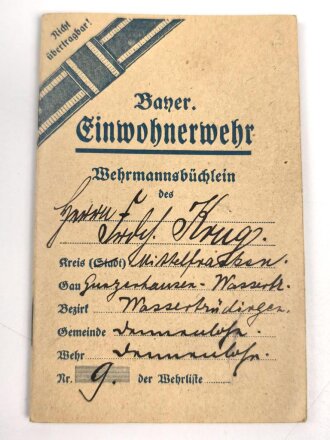 Nicht
übertragbar!
Bayer.
Einwohnerwehr
Wehrmannsbüchlein
des
Herrn Frdch. Krug.
Kreis (Stadt) Mittelfranken.
Gau Gunzenhausen-Wassertr.
Bezirk Wassertrüdingen.
Gemeinde Dennenlohe.
Wehr Dennenlohe.
Nr. 9. der Wehrliste